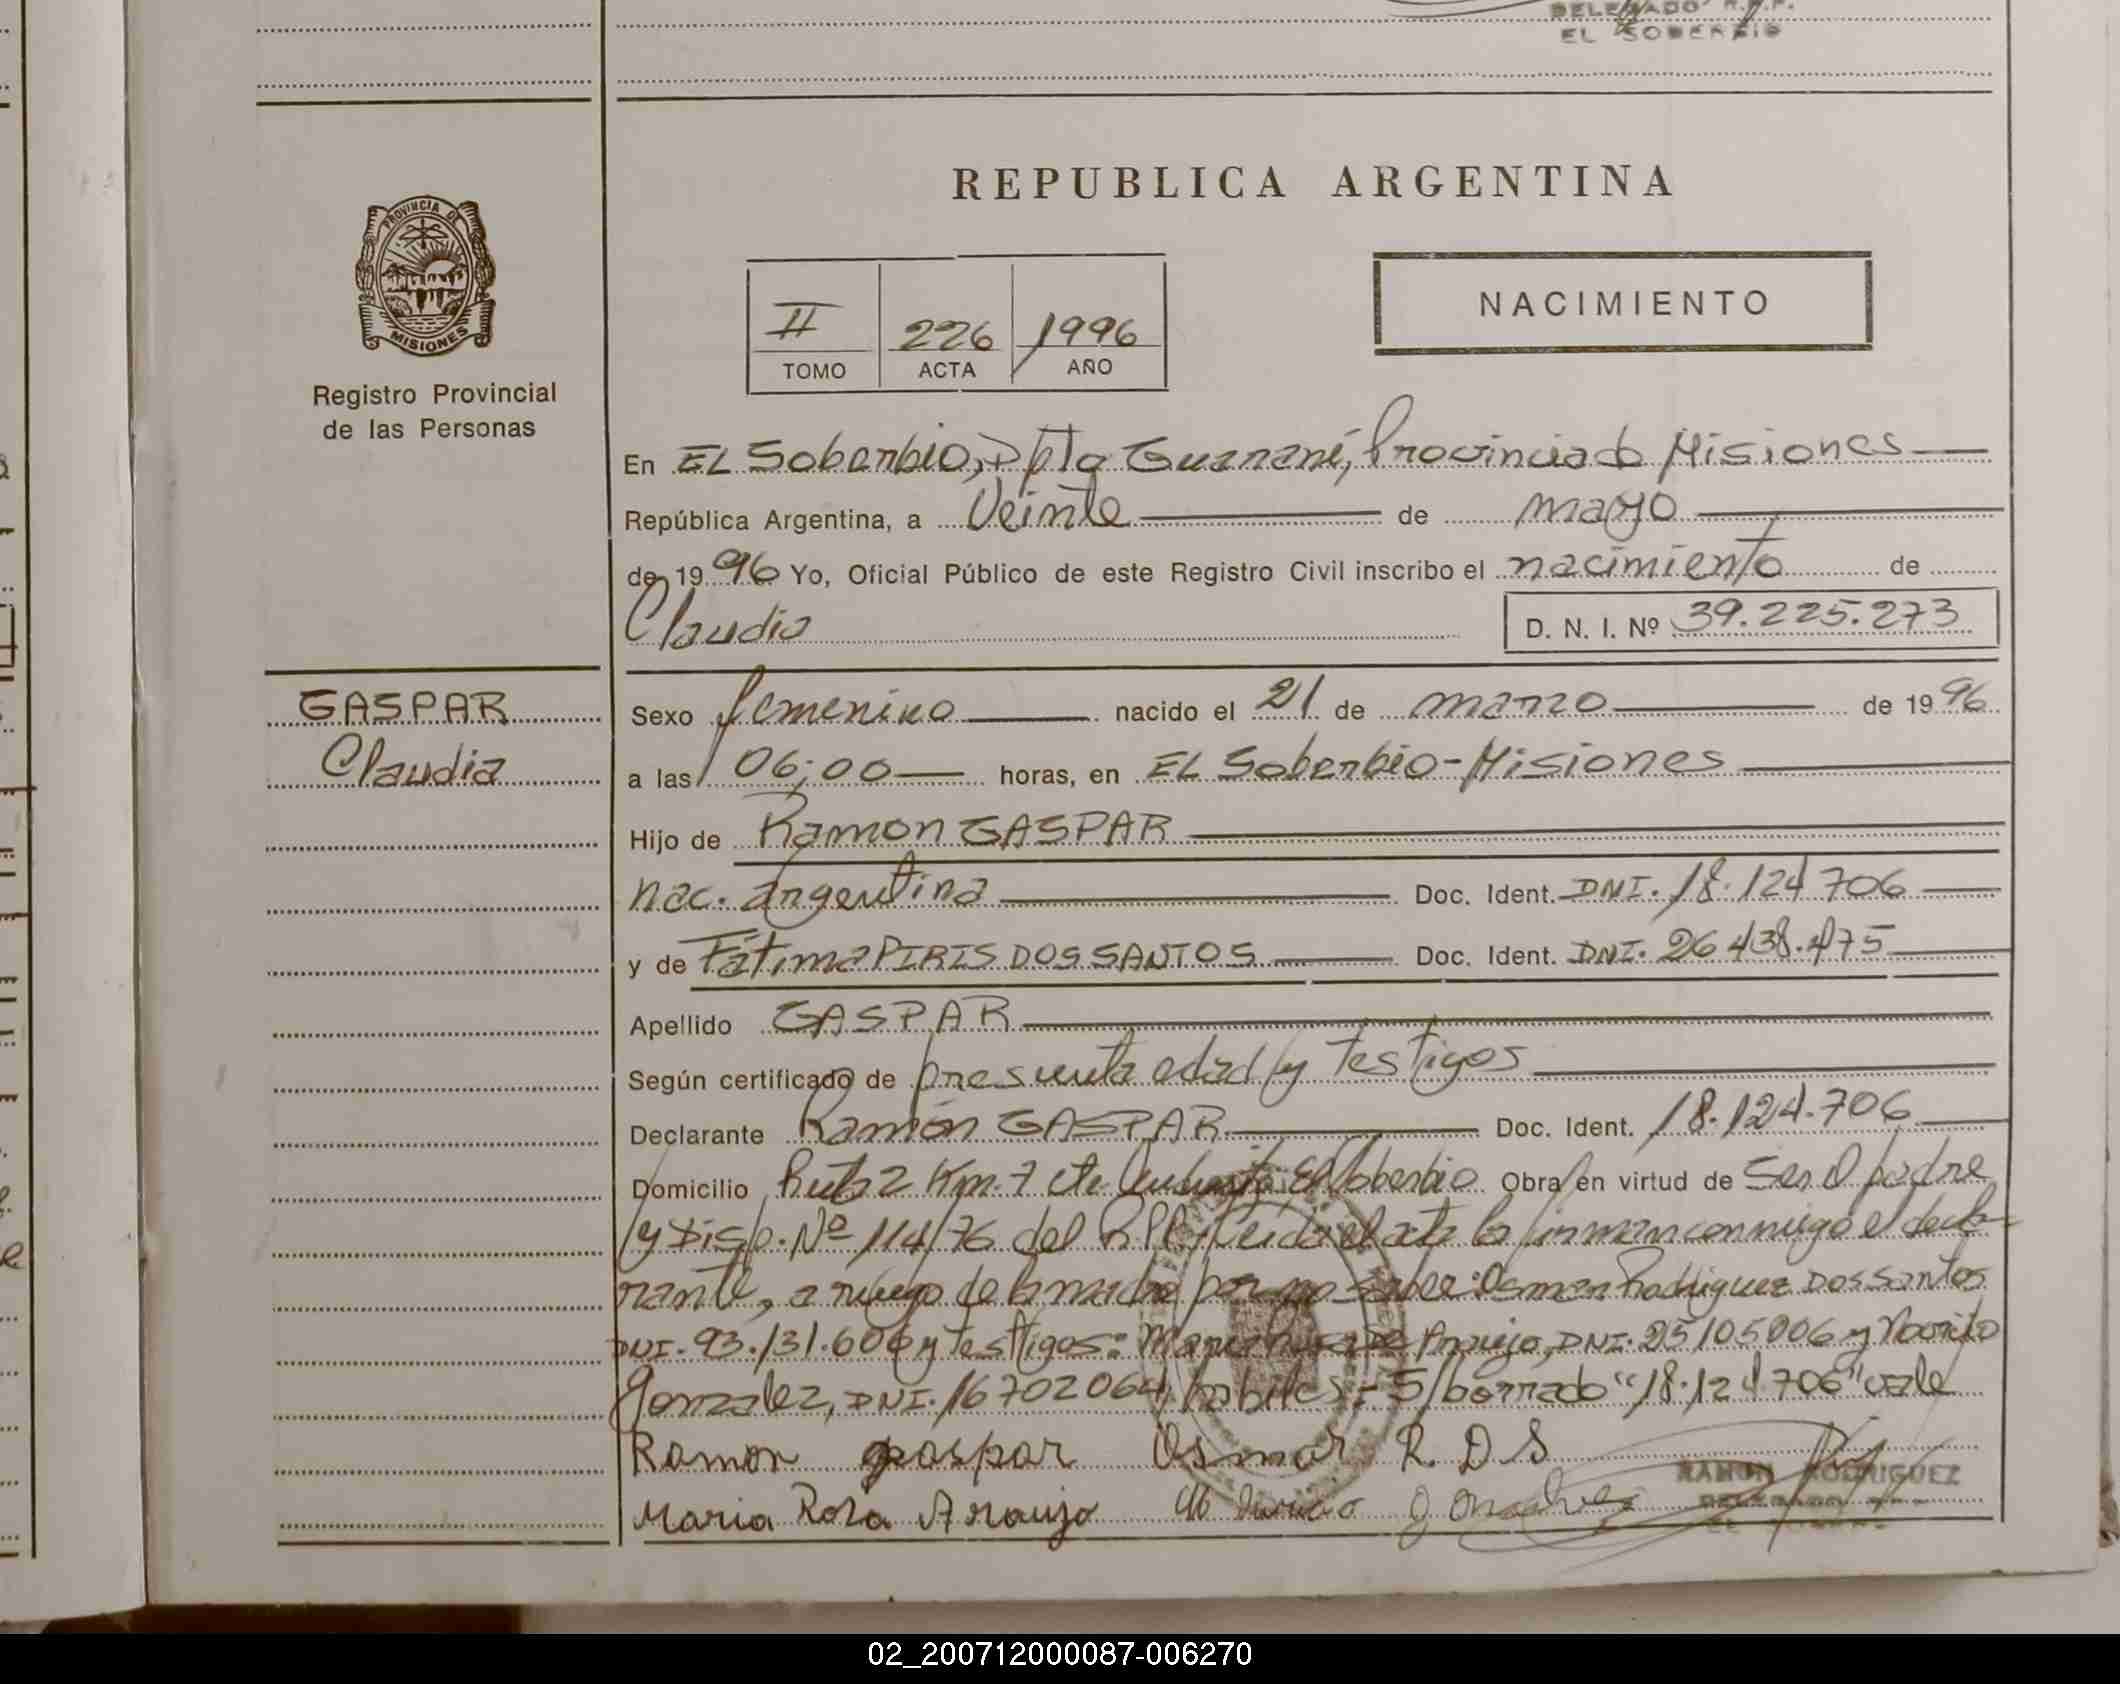 DELEGADO R.P.P.
EL SOBERBIO
PROVINCIA DE
MISIONES
Registro Provincial
de las Personas
GASPAR
Claudia
REPUBLICA ARGENTINA
II 226 1996
TOMO ACTA AÑO
NACIMIENTO
En EL Soberbio, Dpto Guaraní, Provincia de Misiones
República Argentina, a Veinte de mayo
de 1996 Yo, Oficial Público de este Registro Civil inscribo el nacimiento de
Claudia D. N. I. Nº 39.225.273
Sexo femenino nacido el 21 de marzo de 1996
a las 06:00 horas, en EL Soberbio-Misiones
Hijo de Ramon GASPAR
nac. argentina Doc. Ident. DNI. 18.124.706
y de Fátima PIRIS DOS SANTOS Doc. Ident. DNI. 26.438.475
Apellido GASPAR
Según certificado de presunta edad y testigos
Declarante Ramón GASPAR Doc. Ident. 18.124.706
Domicilio Ruta 2 Km. 7 El Soberbio Obra en virtud de Ser el padre
y Disp. Nº 114/76 del R.P.P. Leida el acta la firman conmigo el decla-
rante, a ruego de la madre por no saber: Osmar Rodriguez DOS SANTOS
DNI. 93.131.606 y testigos: Maria Rosa De Araujo, DNI. 25105006 y
Gonzalez, DNI. 16702064 habiles.- S/borrado "18.124.706" vale
Ramon gaspar Osmar R. D S
Maria Roza Araujo
RAMON RODRIGUEZ
DELEGADO
02_200712000087-006270